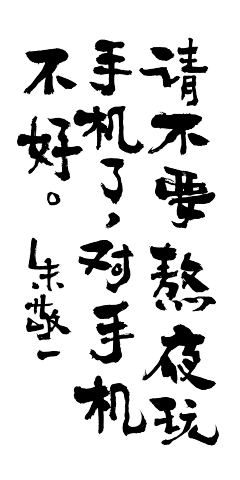 请不要熬夜玩
手机了，对手机
不好。
朱敬一